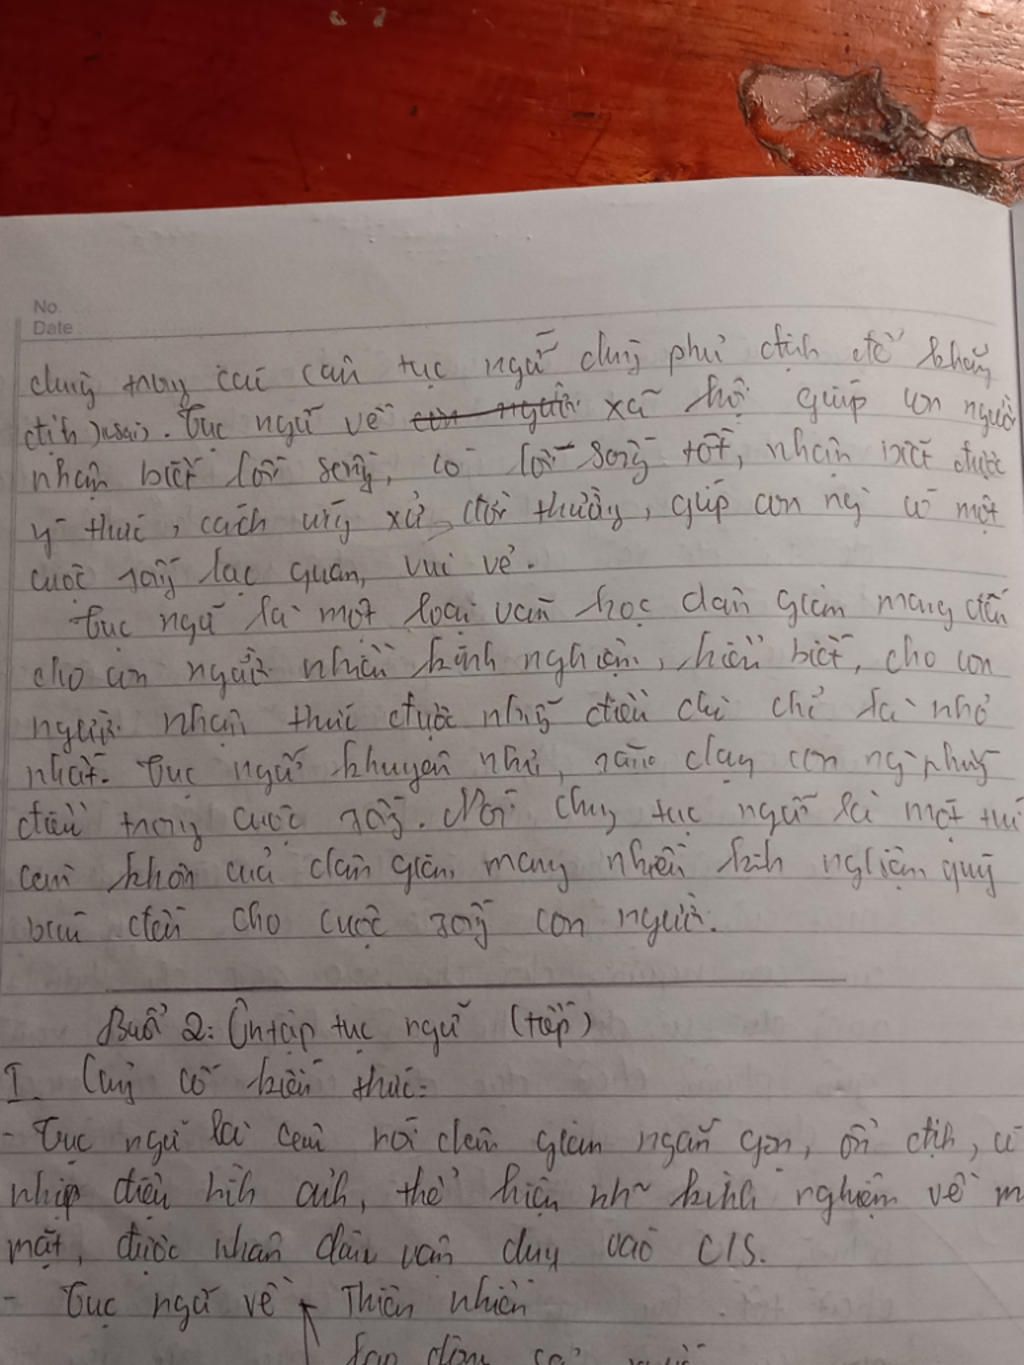 No.
Date
dụng trong các câu tục ngữ dùng phủ định để khẳng
định )usai). Tục ngữ về con người xã hội giúp con người
nhận biết lối sống, có lối sống tốt, nhận xét được
ý thức, cách ứng xử, đời thường, giúp con ng` có một
cuộc sống lạc quan, vui vẻ.
Tục ngữ là một loại văn học dân gian mang đến
cho con người nhiều kinh nghiệm, hiểu biết, cho con
người nhận thức được những điều dù chỉ là nhỏ
nhất. Tục ngữ khuyên nhủ, răn dạy con ng` những
điều trong cuộc sống. Nói chung tục ngữ là một túi
cam khôn của dân gian mang nhiều kinh nghiệm quý
báu đến cho cuộc sống con người.
Buổi 2: Ôn tập tục ngữ (tiếp)
I. Củng cố kiến thức:
- Tục ngữ là câu nói dân gian ngắn gọn, ổn định, có
nhịp điệu hình ảnh, thể hiện nh~ kinh nghiệm về m
mặt, được nhân dân vận dụng vào C/S.
- Tục ngữ về Thiên nhiên